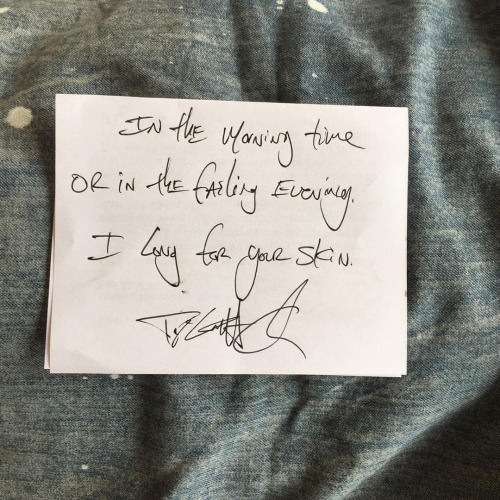 In the Morning time
OR in the failing Evening.
I long for your skin.